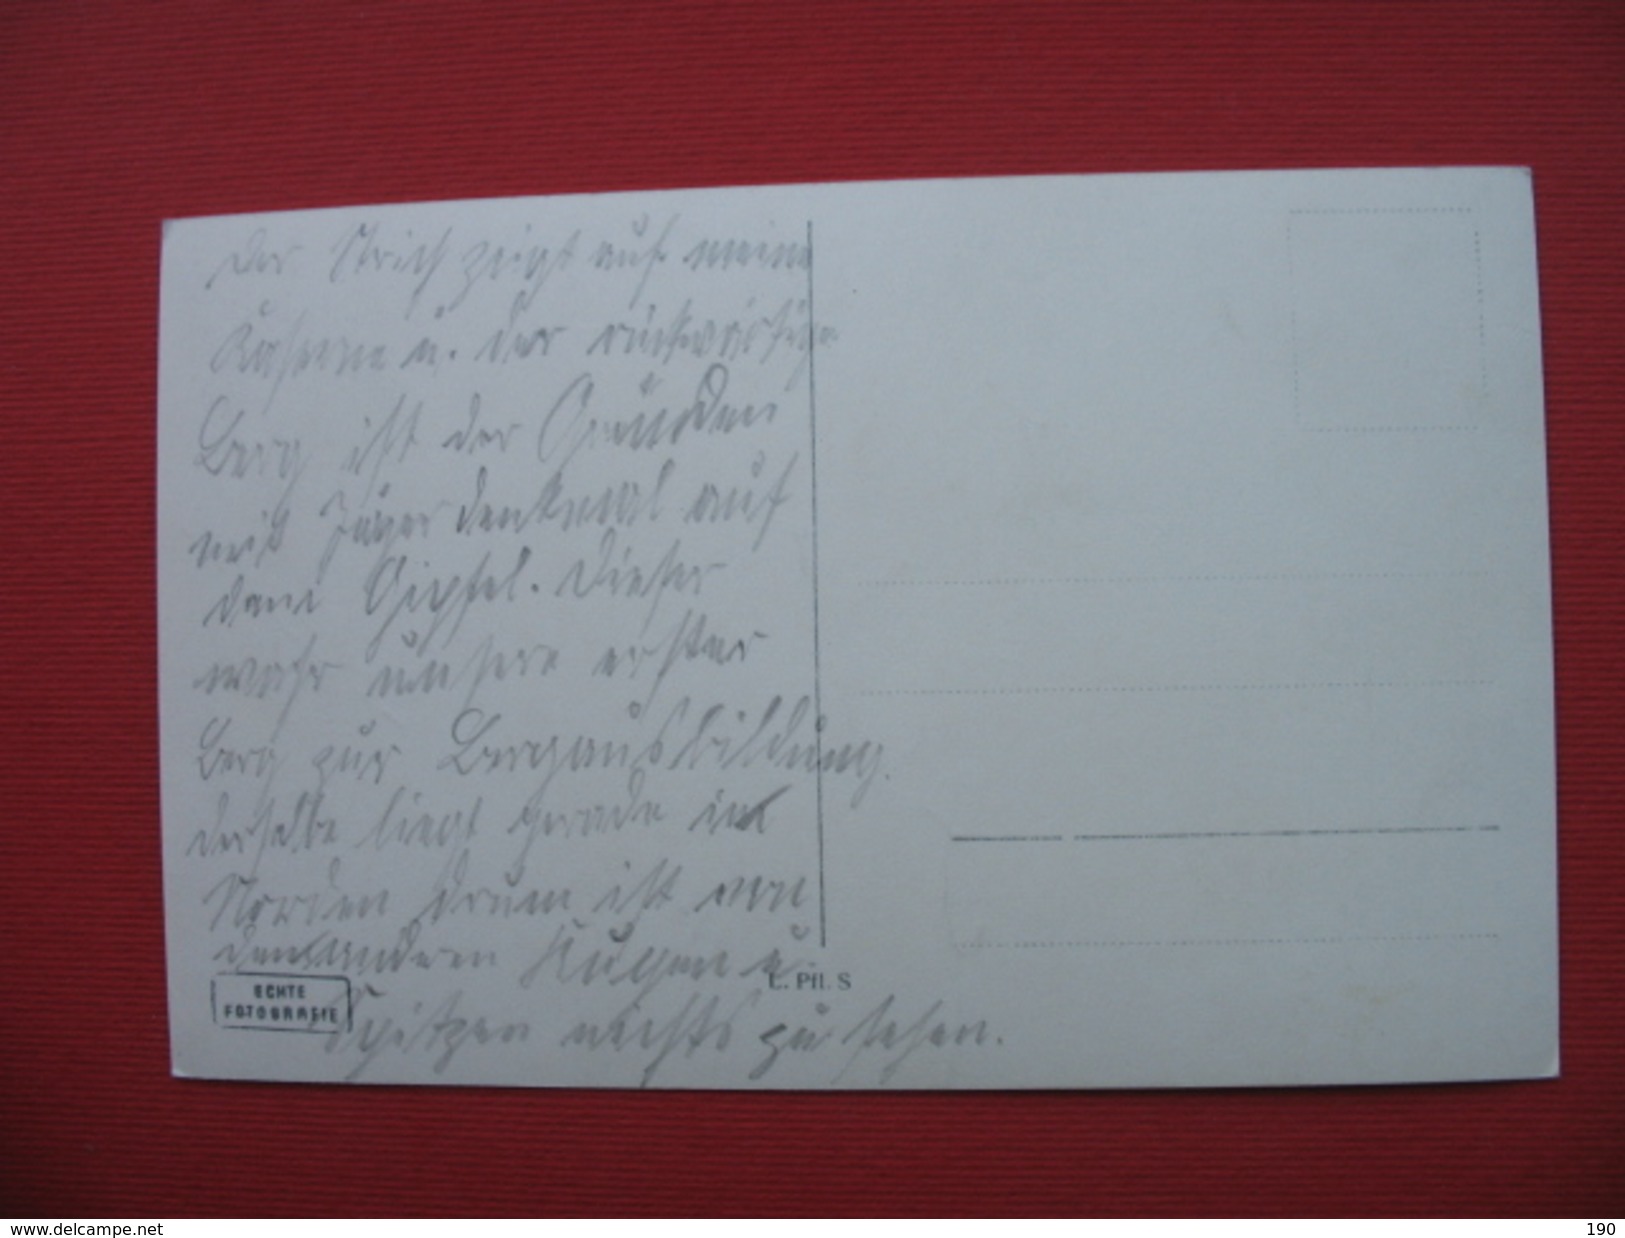 Der Strich zeigt auf meine
Kaserne u. der rückwärtige
Berg ist der Grünten
mit Jägerdenkmal auf
dem Gipfel. Dieser
wahr unsere erster
Berg zur Bergausbildung.
derselbe liegt gerade im
Norden drum ist von
den anderen Kugen u.
Spitzen nichts zu sehen.
ECHTE
FOTOGRAFIE
L. Pfl. S
www.delcampe.net
190